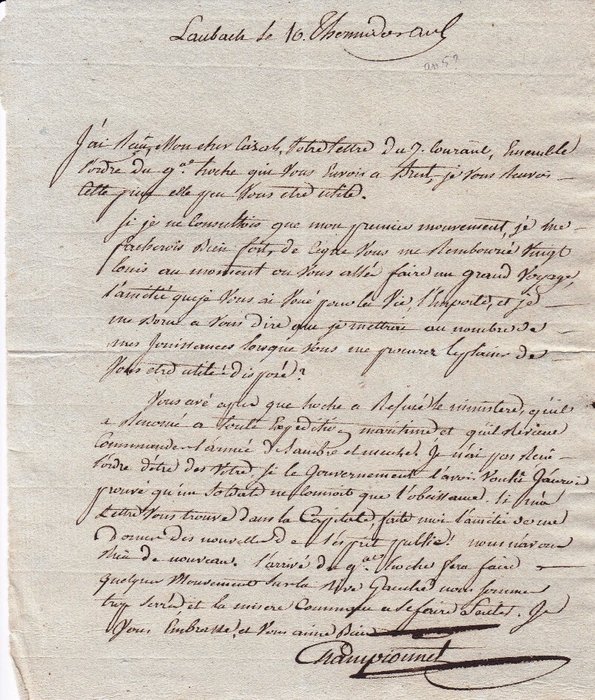 Laubach le 16. Thermidor an 5
an 5
J'ai Reçu, Mon cher votre Lettre Du 7. Courant, Ensemble
l'ordre du g.al hoche qui Vous Envoie a Brest, je vous Renvoie
Cette piece elle peu Vous etre utile.
Si je ne Consultois que mon premier mouvement, je me
facherois Bien fort, de ceque Vous me Rembourié Vingt
louis au moment ou Vous allé faire un grand Voyage,
l'amitié que je Vous ai Voué pour la Vie, l'emporte, et je
me Borne a Vous dire que je mettrai au nombre de
mes Jouissances lorsque vous me procurer le plaisir de
Vous etre utile! disposé?
Vous avé apris que hoche a Refusé le ministere, qu'il
a Renoncé a toute Expedition maritime, et qu'il Revient
Commander l'armée de Sambre et meuse. Je n'ai pas Reçu
l'ordre d'etre des Votres si le Gouvernement l'avoit Voulu J'aurois
prouvé qu'un Soldat ne Connoit que l'obeissance. Si ma
Lettre Vous trouve dans la Capitale, faite moi l'amitié de me
Donner des nouvelles de l'esprit publie. nous n'avons
Rien de nouveau. l'arrivé du g.al hoche fera faire
quelque Mouvement sur la Rive Gauche nous sommes
trop Serré, et la misere Commence a se faire Sentir. Je
Vous Embrasse, et Vous aime Bien
Championnet